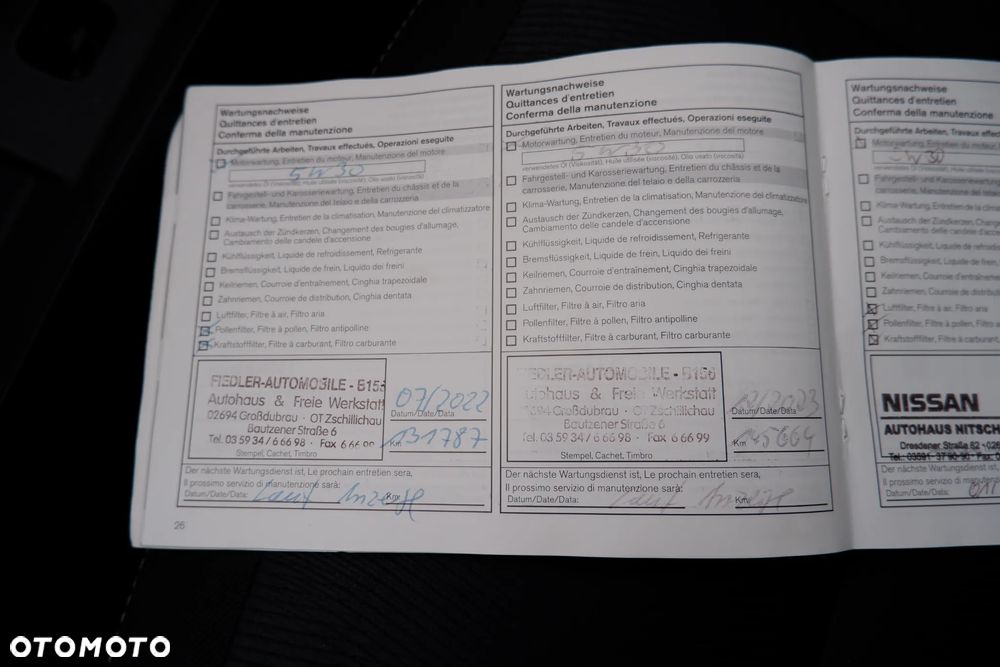 Wartungsnachweise
Quittances d'entretien
Conferma della manutenzione
Durchgeführte Arbeiten, Travaux effectués, Operazioni eseguite
Motorwartung, Entretien du moteur, Manutenzione del motore
5W30
verwendetes Öl (Viskosität), Huile utilisée (viscosité), Olio usato (viscosità)
Fahrgestell- und Karosseriewartung, Entretien du châssis et de la
carrosserie, Manutenzione del telaio e della carrozzeria
Klima-Wartung, Entretien de la climatisation, Manutenzione del climatizzatore
Austausch der Zündkerzen, Changement des bougies d'allumage,
Cambiamento delle candele d'accensione
Kühlflüssigkeit, Liquide de refroidissement, Refrigerante
Bremsflüssigkeit, Liquide de frein, Liquido dei freini
Keilriemen, Courroie d'entraînement, Cinghia trapezoidale
Zahnriemen, Courroie de distribution, Cinghia dentata
Luftfilter, Filtre à air, Filtro aria
Pollenfilter, Filtre à pollen, Filtro antipolline
Kraftstofffilter, Filtre à carburant, Filtro carburante
FIEDLER-AUTOMOBILE - B156
Autohaus & Freie Werkstatt
02694 Großdubrau · OT Zschillichau
Bautzener Straße 6
Tel. 03 59 34 / 6 66 98 · Fax 6 66 99
Stempel, Cachet, Timbro
07/2022
Datum/Date/Data
Km 131787
Der nächste Wartungsdienst ist, Le prochain entretien sera,
Il prossimo servizio di manutenzione sarà:
Datum/Date/Data: laut Anzeige Km:
26
Wartungsnachweise
Quittances d'entretien
Conferma della manutenzione
Durchgeführte Arbeiten, Travaux effectués, Operazioni eseguite
Motorwartung, Entretien du moteur, Manutenzione del motore
5W30
verwendetes Öl (Viskosität), Huile utilisée (viscosité), Olio usato (viscosità)
Fahrgestell- und Karosseriewartung, Entretien du châssis et de la
carrosserie, Manutenzione del telaio e della carrozzeria
Klima-Wartung, Entretien de la climatisation, Manutenzione del climatizzatore
Austausch der Zündkerzen, Changement des bougies d'allumage,
Cambiamento delle candele d'accensione
Kühlflüssigkeit, Liquide de refroidissement, Refrigerante
Bremsflüssigkeit, Liquide de frein, Liquido dei freini
Keilriemen, Courroie d'entraînement, Cinghia trapezoidale
Zahnriemen, Courroie de distribution, Cinghia dentata
Luftfilter, Filtre à air, Filtro aria
Pollenfilter, Filtre à pollen, Filtro antipolline
Kraftstofffilter, Filtre à carburant, Filtro carburante
FIEDLER-AUTOMOBILE - B156
Autohaus & Freie Werkstatt
Großdubrau · OT Zschillichau
Bautzener Straße 6
Tel. 03 59 34 / 6 66 98 · Fax 6 66 99
Stempel, Cachet, Timbro
Datum/Date/Data
Km 145664
Der nächste Wartungsdienst ist, Le prochain entretien sera,
Il prossimo servizio di manutenzione sarà:
Datum/Date/Data: laut Anzeige Km:
Wartungsnachweise
Quittances d'entretien
Conferma della manutenzione
Durchgeführte Arbeiten, Travaux
Motorwartung, Entretien du moteur,
5W30
verwendetes Öl (Viskosität), Huile utilisée
Fahrgestell- und Karosseriewartung,
carrosserie, Manutenzione del telaio
Klima-Wartung, Entretien de la
Austausch der Zündkerzen,
Cambiamento delle candele
Kühlflüssigkeit, Liquide de
Bremsflüssigkeit, Liquide de frein,
Keilriemen, Courroie d'entraînement
Zahnriemen, Courroie de distribution
Luftfilter, Filtre à air, Filtro aria
Pollenfilter, Filtre à pollen, Filtro
Kraftstofffilter, Filtre à
NISSAN
AUTOHAUS NITSCH
Dresdener Straße 82
Stempel, Cachet, Timbro
Der nächste Wartungsdienst ist,
Il prossimo servizio di
Datum/Date/Data:
OTOMOTO